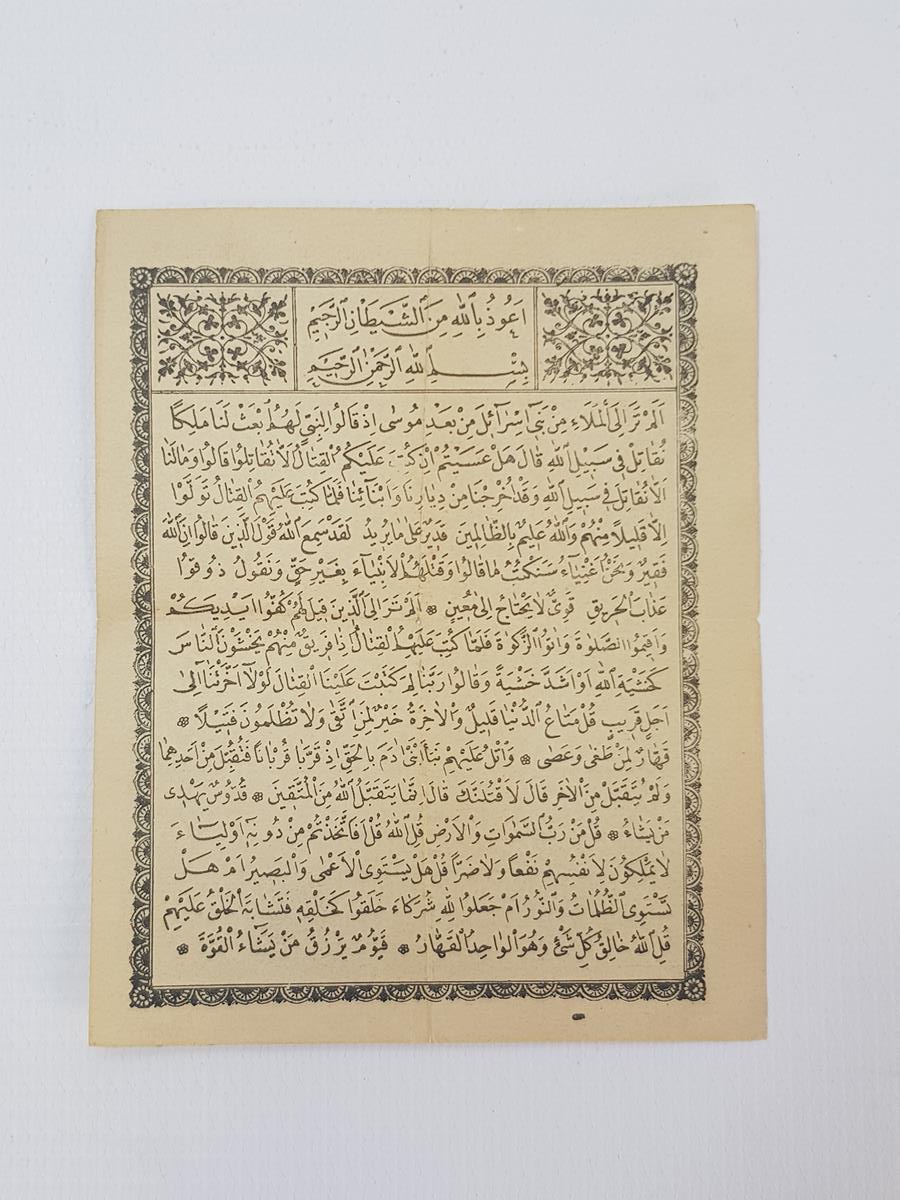 اَعُوذُ بِاللّٰهِ مِنَ الشَّيْطَانِ الرَّجِيْمِ
بِسْمِ اللّٰهِ الرَّحْمٰنِ الرَّحِيْمِ
اَلَمْ تَرَ اِلَى الْمَلَاءِ مِنْ بَنِى اِسْرَآئِلَ مِنْ بَعْدِ مُوسٰى اِذْ قَالُوا لِنَبِىٍّ لَهُمُ ابْعَثْ لَنَا مَلِكًا
نُقَاتِلْ فِى سَبِيلِ اللّٰهِ قَالَ هَلْ عَسَيْتُمْ اِنْ كُتِبَ عَلَيْكُمُ الْقِتَالُ اَلَّا تُقَاتِلُوا قَالُوا وَمَا لَنَا
اَلَّا نُقَاتِلَ فِى سَبِيلِ اللّٰهِ وَقَدْ اُخْرِجْنَا مِنْ دِيَارِنَا وَاَبْنَائِنَا فَلَمَّا كُتِبَ عَلَيْهِمُ الْقِتَالُ تَوَلَّوْا
اِلَّا قَلِيلًا مِنْهُمْ وَاللّٰهُ عَلِيمٌ بِالظَّالِمِينَ قَدِيرٌ عَلٰى مَا يُرِيدُ لَقَدْ سَمِعَ اللّٰهُ قَوْلَ الَّذِينَ قَالُوا اِنَّ اللّٰهَ
فَقِيرٌ وَنَحْنُ اَغْنِيَاءُ سَنَكْتُبُ مَا قَالُوا وَقَتْلَهُمُ الْاَنْبِيَآءَ بِغَيْرِ حَقٍّ وَنَقُولُ ذُوقُوا
عَذَابَ الْحَرِيقِ قَوِىٌّ لَا يَحْتَاجُ اِلٰى مُعِينٍ ❋ اَلَمْ تَرَ اِلَى الَّذِينَ قِيلَ لَهُمْ كُفُّوا اَيْدِيَكُمْ
وَاَقِيمُوا الصَّلٰوةَ وَاٰتُوا الزَّكٰوةَ فَلَمَّا كُتِبَ عَلَيْهِمُ الْقِتَالُ اِذَا فَرِيقٌ مِنْهُمْ يَخْشَوْنَ النَّاسَ
كَخَشْيَةِ اللّٰهِ اَوْ اَشَدَّ خَشْيَةً وَقَالُوا رَبَّنَا لِمَ كَتَبْتَ عَلَيْنَا الْقِتَالَ لَوْلَا اَخَّرْتَنَا اِلٰى
اَجَلٍ قَرِيبٍ قُلْ مَتَاعُ الدُّنْيَا قَلِيلٌ وَالْاٰخِرَةُ خَيْرٌ لِمَنِ اتَّقٰى وَلَا تُظْلَمُونَ فَتِيلًا ❋
قَهَّارٌ لِمَنْ طَغٰى وَعَصٰى ❋ وَاتْلُ عَلَيْهِمْ نَبَاَ ابْنَىْ اٰدَمَ بِالْحَقِّ اِذْ قَرَّبَا قُرْبَانًا فَتُقُبِّلَ مِنْ اَحَدِهِمَا
وَلَمْ يُتَقَبَّلْ مِنَ الْاٰخَرِ قَالَ لَاَقْتُلَنَّكَ قَالَ اِنَّمَا يَتَقَبَّلُ اللّٰهُ مِنَ الْمُتَّقِينَ ❋ قُدُّوسٌ يَهْدِى
مَنْ يَشَاءُ ❋ قُلْ مَنْ رَبُّ السَّمٰوَاتِ وَالْاَرْضِ قُلِ اللّٰهُ قُلْ اَفَاتَّخَذْتُمْ مِنْ دُونِهٖ اَوْلِيَاءَ
لَا يَمْلِكُونَ لِاَنْفُسِهِمْ نَفْعًا وَلَا ضَرًّا قُلْ هَلْ يَسْتَوِى الْاَعْمٰى وَالْبَصِيرُ اَمْ هَلْ
تَسْتَوِى الظُّلُمَاتُ وَالنُّورُ اَمْ جَعَلُوا لِلّٰهِ شُرَكَاءَ خَلَقُوا كَخَلْقِهٖ فَتَشَابَهَ الْخَلْقُ عَلَيْهِمْ
قُلِ اللّٰهُ خَالِقُ كُلِّ شَىْءٍ وَهُوَ الْوَاحِدُ الْقَهَّارُ ❋ قَيُّومٌ يَرْزُقُ مَنْ يَشَاءُ الْقُوَّةَ ❋